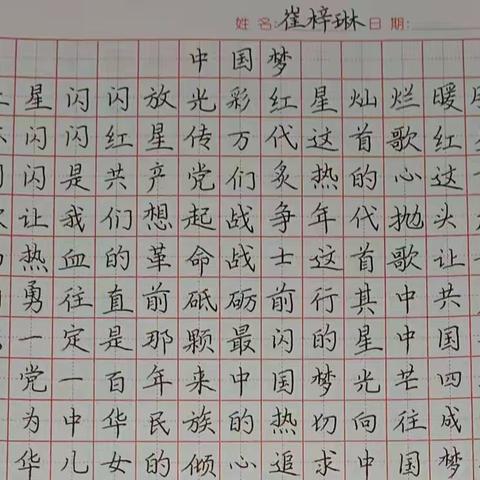 姓名:崔梓琳日期:
中国梦
星闪闪放光彩红星灿烂暖
闪闪红星传万代这首歌红
闪是共产党们炙热的心过
让我们想起战争年代抛头
热血的革命战士这首歌让
勇往直前砥砺前行其中共
一定是那颗最闪的星中国
党一百年来中国梦光芒四
为中华民族的热切向往成
华儿女的倾心追求中国梦